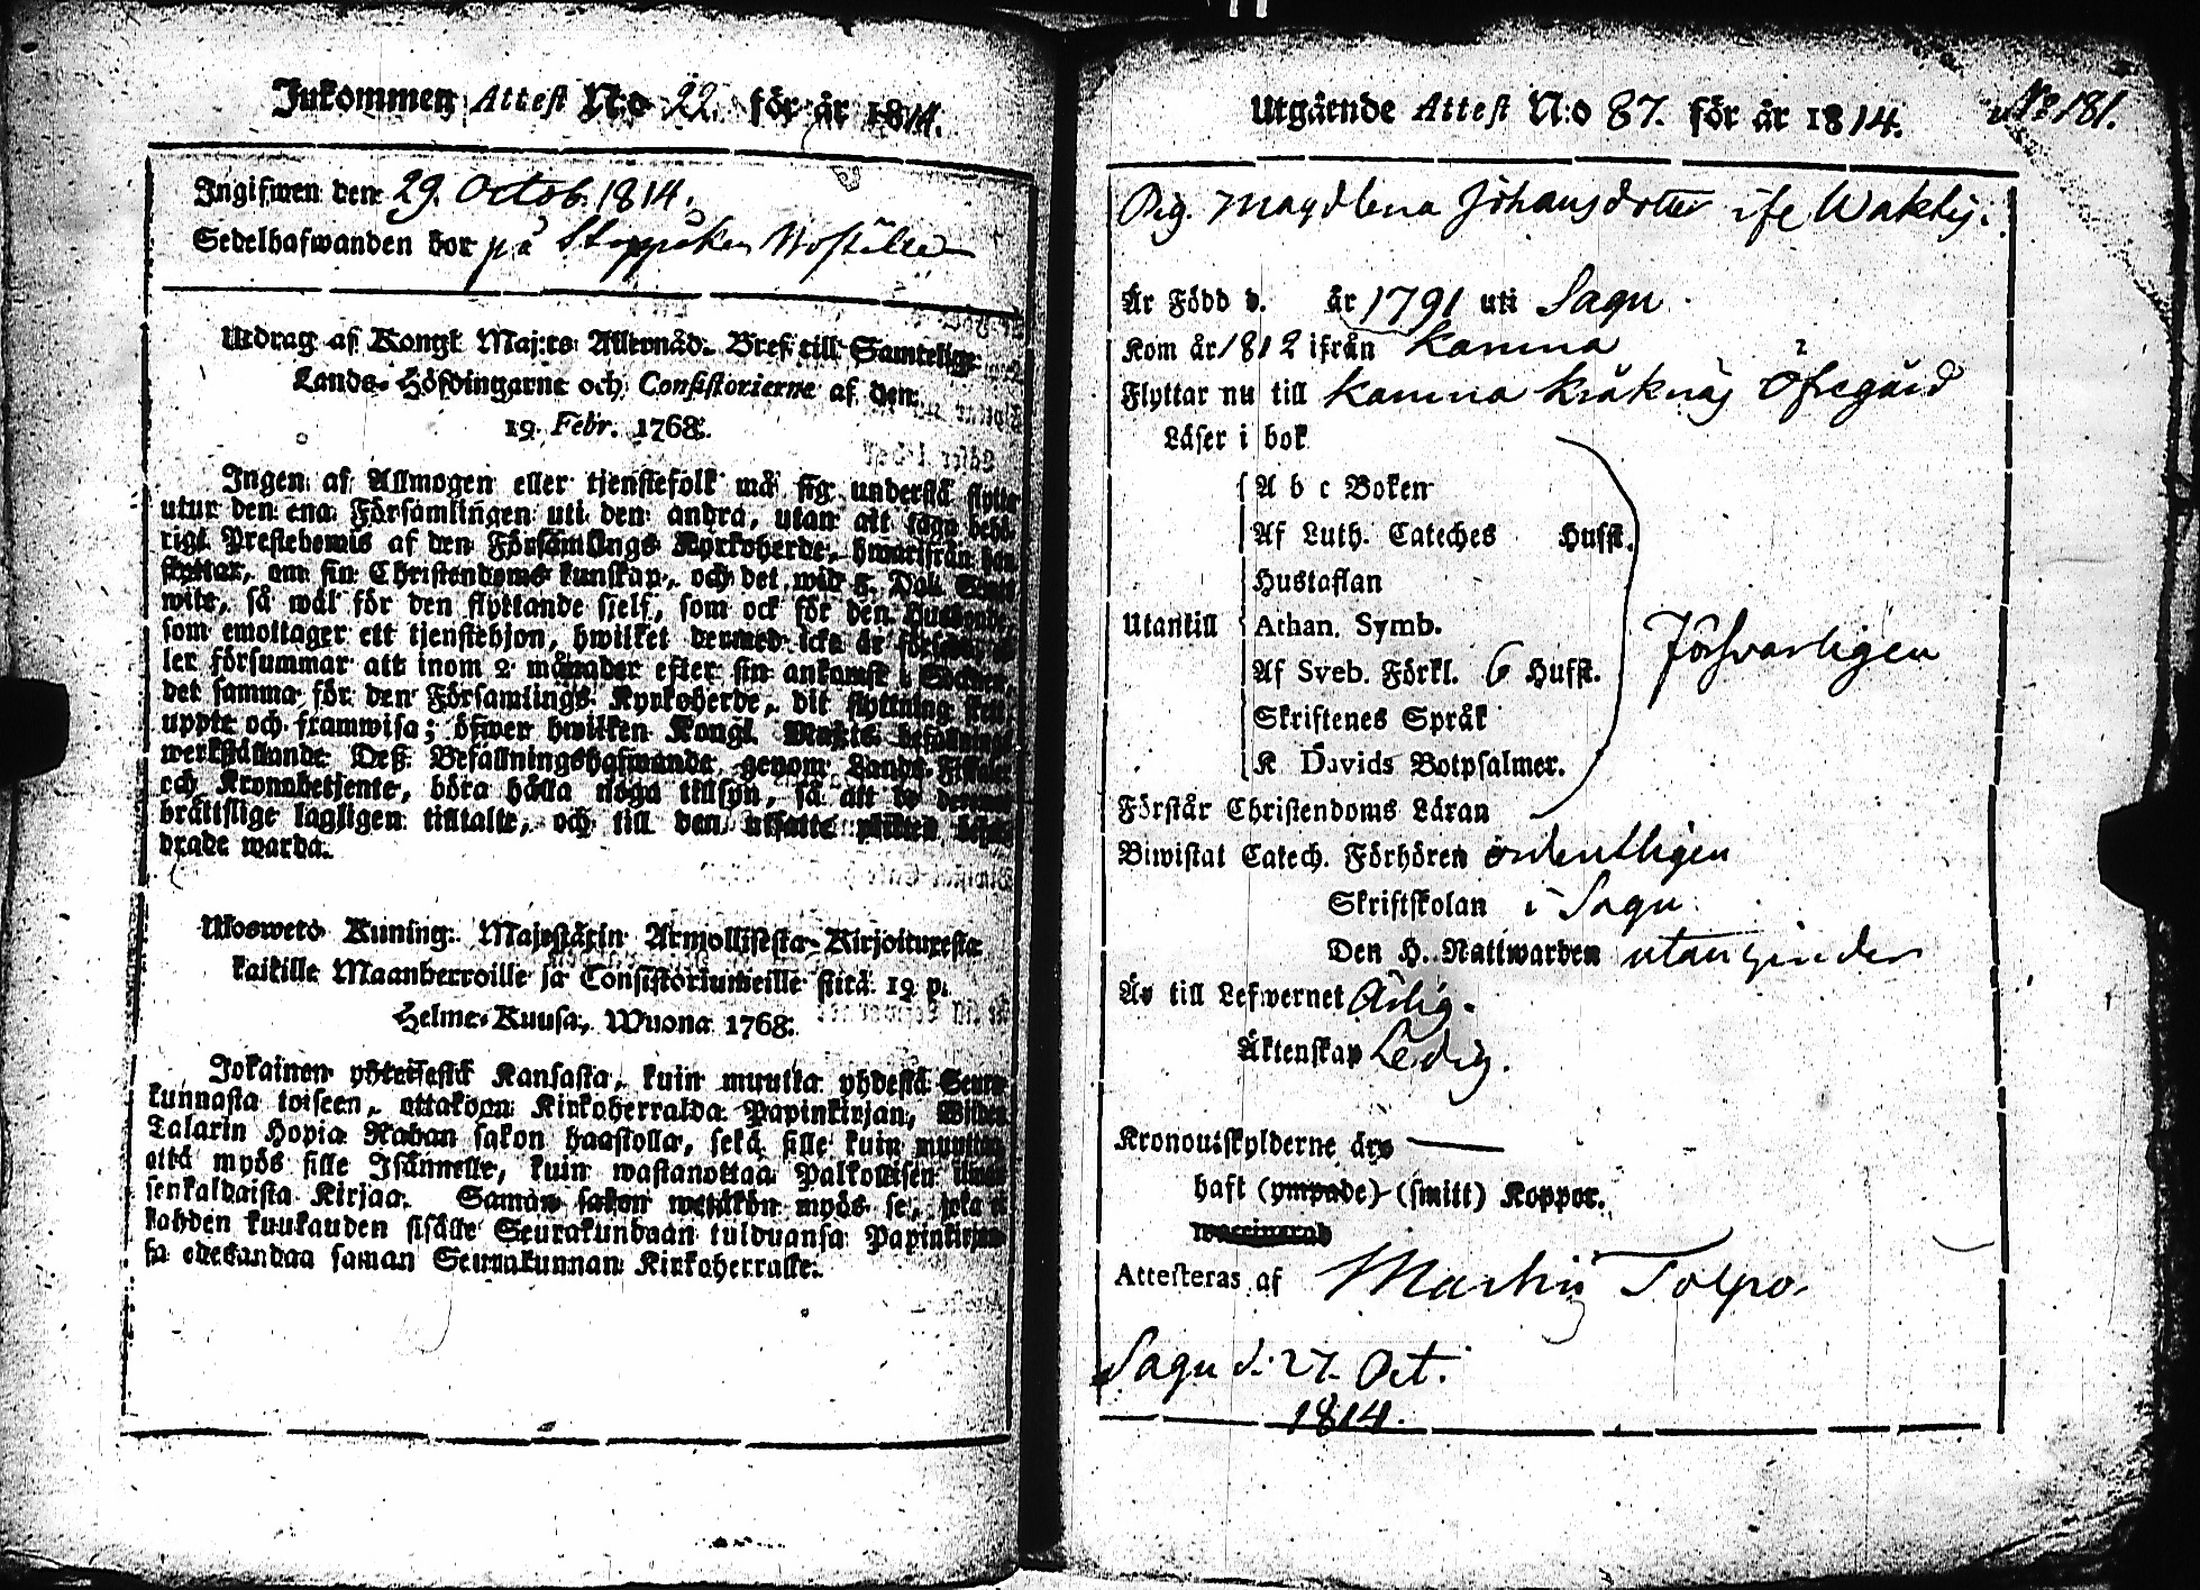 Inkommen Attest N:o 22. för år 1814.
Ingifwen den 29. Octob. 1814.
Sedelhafwanden bor på
Utdrag af Kongl Maj:ts Allernåd. Bref till Samtelige
Lands-Höfdingarne och Consistorierne af den
19. Febr. 1768.
Ingen af Allmogen eller tjenstefolk må sig understå flytta
utur den ena Församlingen uti den andra, utan att taga behö-
rigt Prestebewis af den Församlings Kyrkoherde, hwarifrån han
flyttar, om sin Christendoms kunskap, och det wid 5. Dal. Smts
wite, så wäl för den flyttande sjelf, som ock för den Husbonde,
som emottager ett tjenstehjon, hwilket dermed icke är försedt, el-
ler försummar att inom 2 månader efter sin ankomst i Socknen,
det samma för den Församlings Kyrkoherde, dit flyttning skett,
uppte och framwisa; öfwer hwilken Kongl. Maj:ts befallnings
werkställande Deß Befallningshafwande genom Lands-Fiskaler
och Kronobetjente, böra hålla noga tillsyn, så att de dermed
brättslige lagligen tilltalte, och till den utsatte plikten befor-
drade warda.
Ulosweto Kuning. Majestätin Armollisesta Kirjoituxesta
kaikille Maanherroille ja Consistoriumeille siitä 19 p.
Helme-Kuusa, Wuona 1768.
Jokainen yhteisestä Kansasta, kuin muutta yhdestä Seura-
kunnasta toiseen, ottakoon Kirkoherralda Papinkirjan, Wiiden
Talarin Hopia Rahan sakon haastolla, sekä sille kuin muuttaa,
että myös sille Isännelle, kuin wastanottaa Palkollisen ilman
senkaldaista Kirjaa. Saman sakon wetäkön myös se, joka ei
kahden kuukauden sisälle Seurakundaan tulduansa Papinkirjan-
sa edesandaa saman Seurakunnan Kirkoherralle.
No 181.
Utgående Attest N:o 87. för år 1814.
Pig. Magdlena Johansdotter ifr Wakby.
Är Född d. år 1791 uti Sagu.
Kom år 1812 ifrån Karuna
Flyttar nu till Karuna Kråknäs Öfvegård
Läser i bok
A b c Boken
Af Luth. Cateches Hufst.
Hustaflan
Utantill Athan. Symb.
Af Sveb. Förkl. 6 Hufst.
Skriftenes Språk
K Davids Botpsalmer.
Försvarligen
Förstår Christendoms Läran
Biwistat Catech. Förhören ordentligen
Skriftskolan i Sagu.
Den H. Nattwarden
Är till Lefwernet Ärlig.
Äktenskap Ledig.
Kronoutskylderne äro
haft (ympade) (smitt) Koppor.
Attesteras af Martin Tolpo.
Sagu d. 27. Oct.
1814.